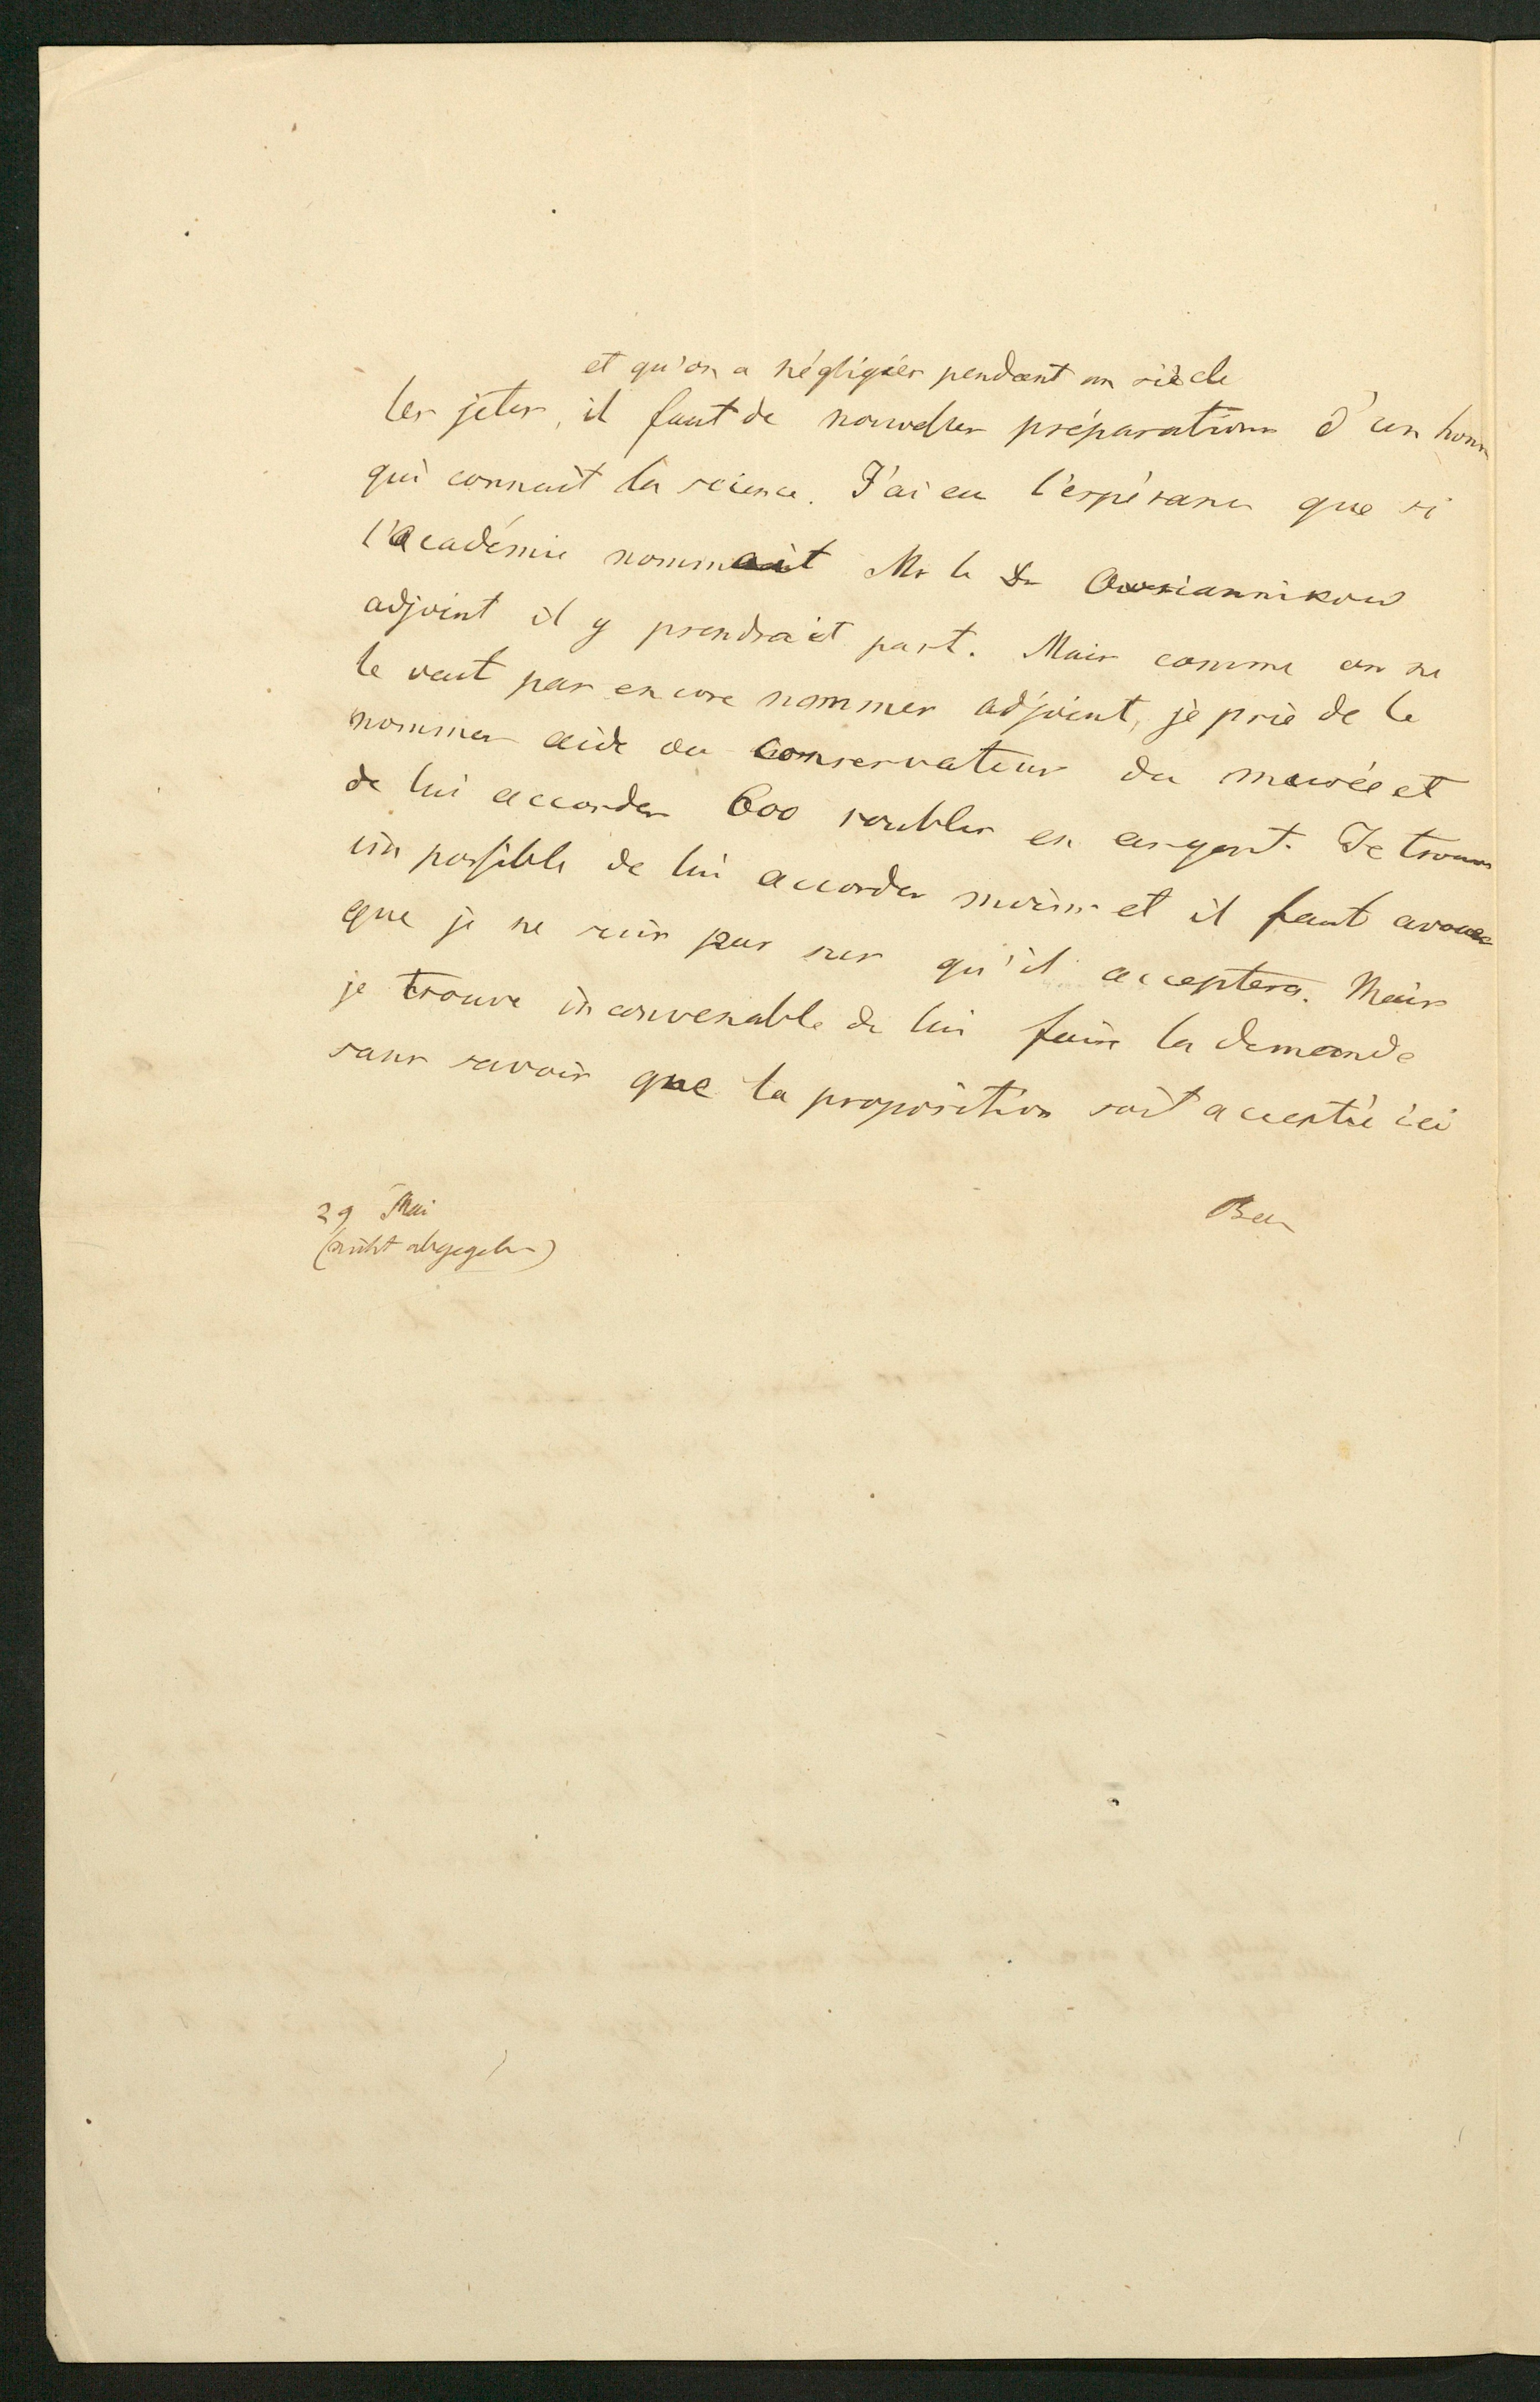 et qu'on a négligiés pendant un siècle
les jeter, il faut de nouvelles préparations d'un hom
qui connait la science. J'ai eu l'espérance que si
l'Académie nommait Mr le Dr Owsiannikow
adjoint il y prendrait part. Mais comme on ne
le veut pas encore nommer adjoint, je prie de le
nommer aide ou conservateur du musée et
de lui accorder 600 roubles en argent. Je trouve
impossible de lui accorder moins et il faut avouer
que je ne suis pas sur qu'il acceptera. Mais
je trouve inconvenable de lui faire la demande
sans savoir que la proposition soit acceptée ici
29 Mai
Baer
(nicht abgegeben)